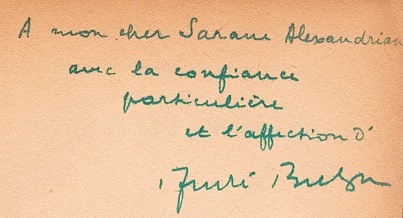 A mon cher Sarane Alexandrian
avec la confiance
particulière
et l'affection d'
André Breton